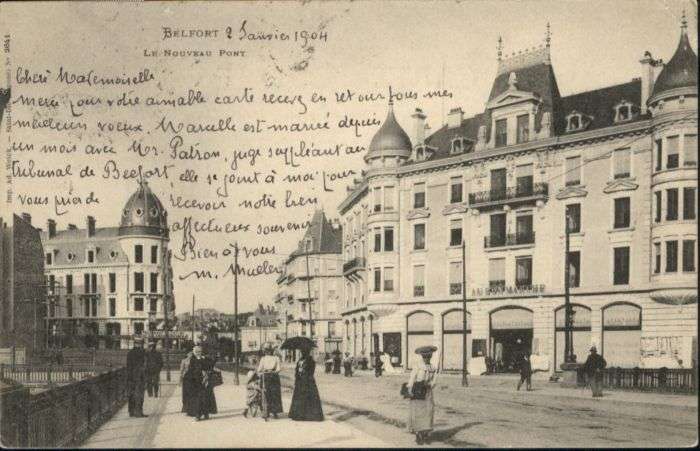 BELFORT 2 Janvier 1904
LE NOUVEAU PONT
Chère Mademoiselle
Merci pour votre aimable carte recevez en retour tous mes
meilleurs voeux. Marcelle est mariée depuis
un mois avec Mr. Patron, juge suppléant au
tribunal de Belfort, elle se joint à moi pour
vous prier de recevoir notre bien
affectueux souvenir
Bien à vous
M. Muller
AU BON MARCHÉ